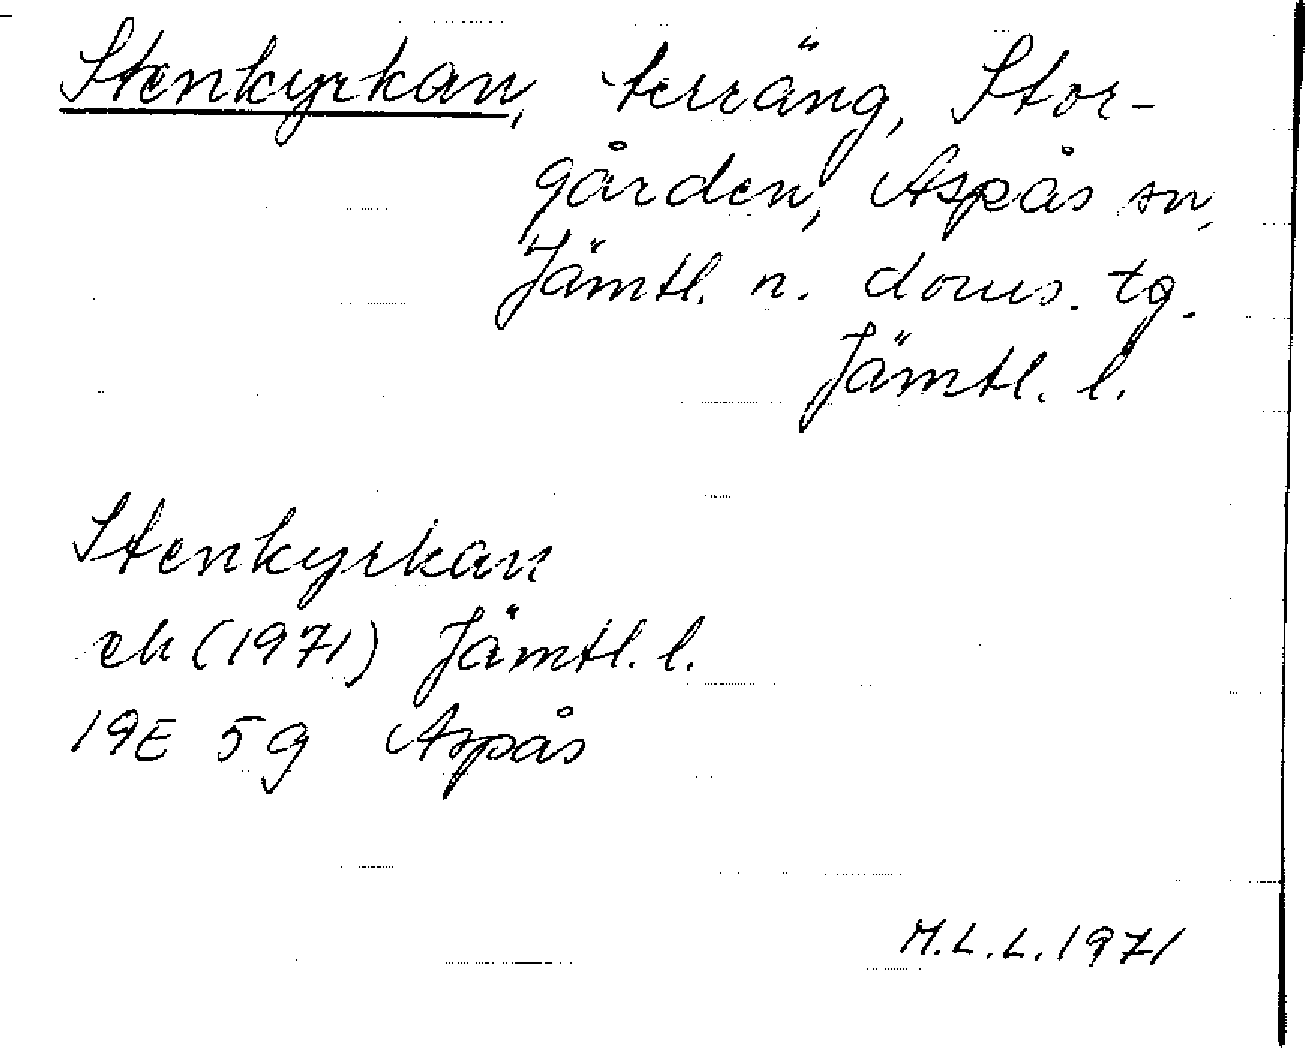 Stenkyrkan, terräng, Stor-
gården, Aspås sn,
Jämtl. n. doms. tg.
Jämtl. l.
Stenkyrkan
ek (1971) Jämtl. l.
19E 5g Aspås
M.L.L. 1971